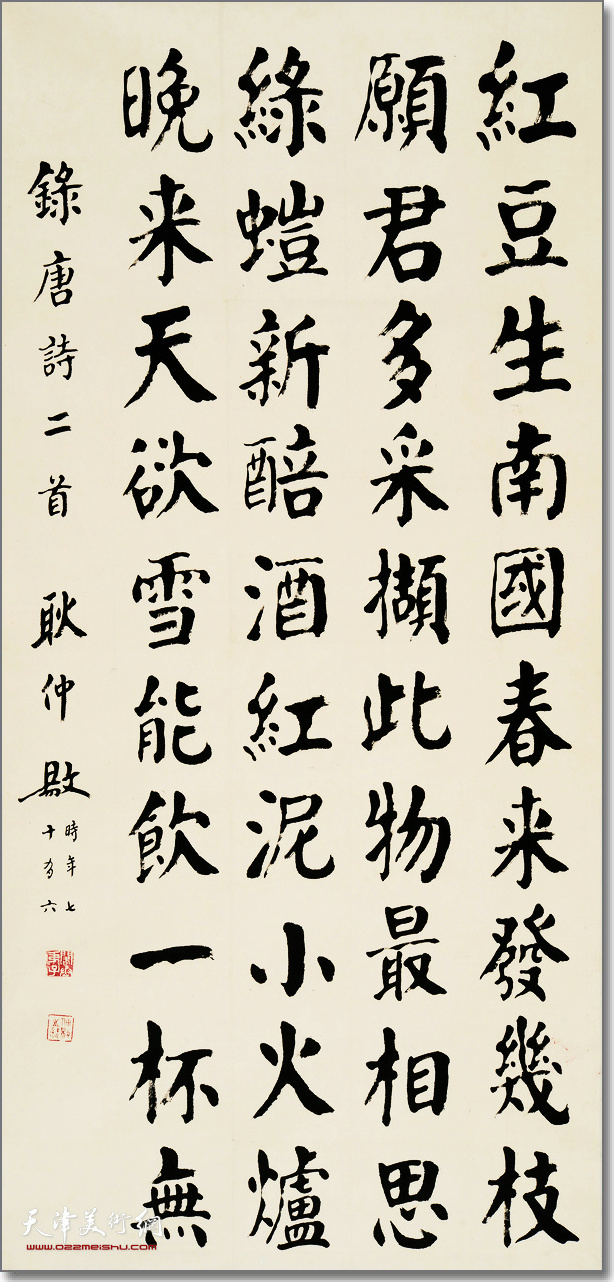 紅豆生南國春来發幾枝
願君多采擷此物最相思
綠螘新醅酒紅泥小火爐
晚来天欲雪能飲一杯無
錄唐詩二首 耿仲敭
時年七
十有六
天津美術網
www.022meishu.com